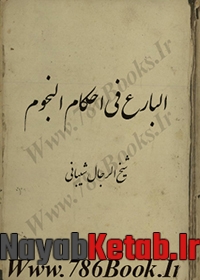 www.786Books.Ir
البارع فی احکام النجوم
شیخ الرجال شیبانی
www.786Books.Ir
NayabKetab.Ir
www.786Book.Ir